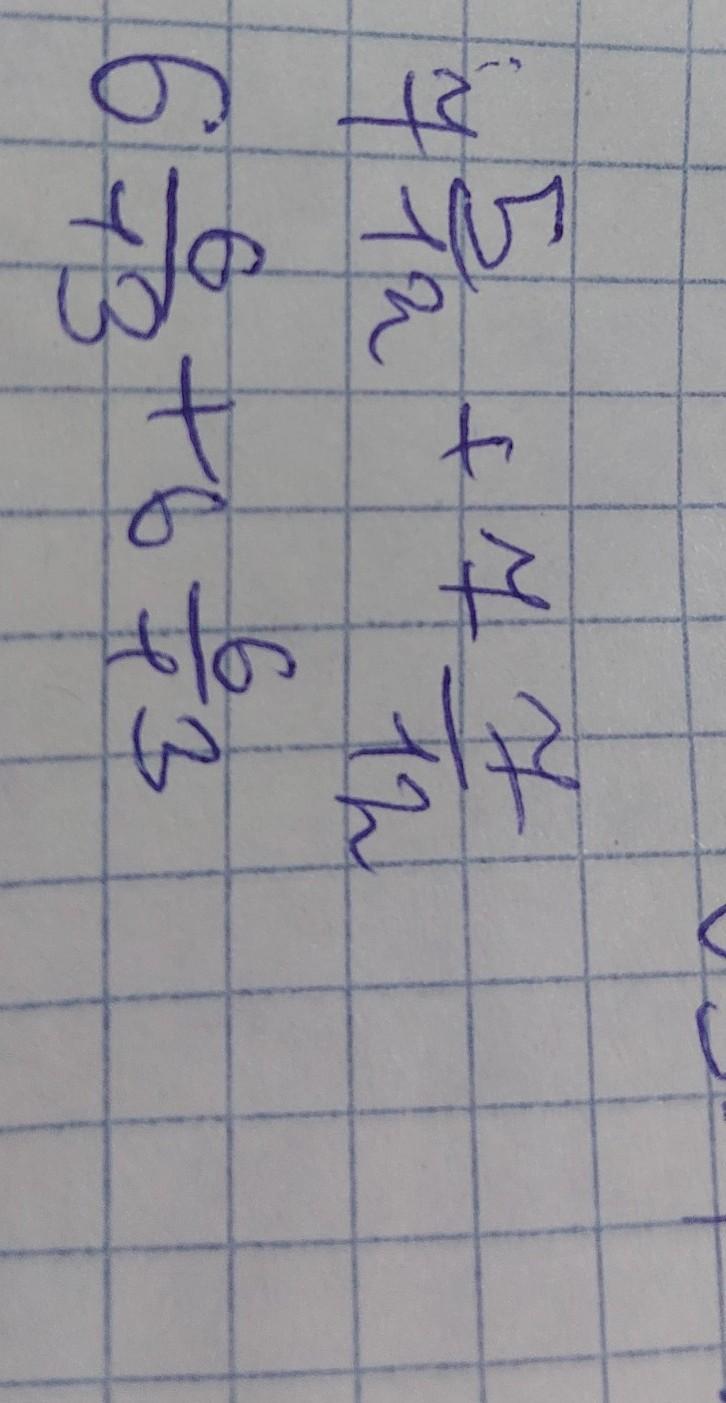 7 5/12 + 7 7/12
6 6/13 + 6 6/13